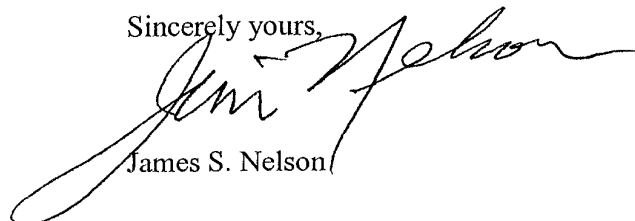 Sincerely yours,
Jim Nelson
James S. Nelson